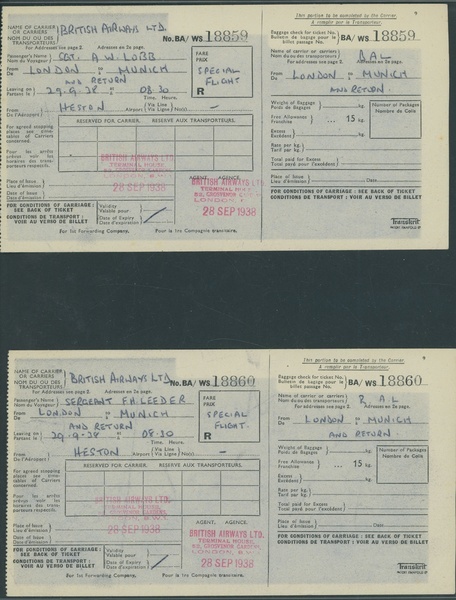 NAME OF CARRIER OR CARRIERS
NOM DU OU DES TRANSPORTEURS
BRITISH AIRWAYS LTD.
For Addresses see page 2. Adresses en 2e page.
No. BA/WS 18859
Passenger's Name
Nom du Voyageur
SGT. A W LOBB
From De LONDON to à MUNICH
AND RETURN
Leaving on
Partant le
29.9.38 08.30
Time. Heures.
From
De (l'Aéroport)
HESTON
Airport (Via Line)
(Via Ligne/No(s))
—
FARE
PRIX
SPECIAL
FLIGHT
R
For agreed stopping places see time-tables of Carriers concerned.
RESERVED FOR CARRIER. RESERVE AUX TRANSPORTEURS.
Pour les arrêts prévus voir les horaires des transporteurs respectifs.
Place of Issue
Lieu d'émission
Date of Issue
Date d'émission
BRITISH AIRWAYS LTD.
TERMINAL HOUSE,
28 SEP 1938
AGENT. AGENCE.
BRITISH AIRWAYS LTD.
TERMINAL HOUSE,
52, GROSVENOR GARDENS,
LONDON, S.W.1
28 SEP 1938
FOR CONDITIONS OF CARRIAGE: SEE BACK OF TICKET
CONDITIONS DE TRANSPORT: VOIR AU VERSO DE BILLET
Validity
Valable pour
Date of Expiry
Date d'expiration
For 1st Forwarding Company. Pour la 1re Compagnie transitaire.
This portion to be completed by the Carrier.
A remplir par le Transporteur.
Baggage check for ticket No.
Bulletin de bagage pour le billet passage No.
BA/WS 18859
Name of carrier or carriers
Nom du ou des transporteurs
B A L
From De LONDON to à MUNICH
AND RETURN.
Weight of Baggage
Poids du Bagage
kg.
Free Allowance
Franchise
15 kg.
Excess
Excédent
kg.
Number of Packages
Nombre de Colis
Rate per kg.
Tarif par kg.
Total paid for Excess
Total payé pour l'excédent
Place of Issue
Lieu d'émission
Date
FOR CONDITIONS OF CARRIAGE: SEE BACK OF TICKET
CONDITIONS DE TRANSPORT: VOIR AU VERSO DE BILLET
NAME OF CARRIER OR CARRIERS
NOM DU OU DES TRANSPORTEURS
BRITISH AIRWAYS LTD
For Addresses see page 2. Adresses en 2e page.
No. BA/WS 18860
Passenger's Name
Nom du Voyageur
SERGEANT F.H. LEEDER
From De LONDON to à MUNICH
AND RETURN
Leaving on
Partant le
29-9-38 08.30
Time. Heures.
From
De (l'Aéroport)
HESTON
Airport (Via Line)
(Via Ligne/No(s))
—
FARE
PRIX
SPECIAL
FLIGHT.
R
For agreed stopping places see time-tables of Carriers concerned.
RESERVED FOR CARRIER. RESERVE AUX TRANSPORTEURS.
Pour les arrêts prévus voir les horaires des transporteurs respectifs.
Place of Issue
Lieu d'émission
Date of Issue
Date d'émission
BRITISH AIRWAYS LTD.
TERMINAL HOUSE,
28 SEP 1938
AGENT. AGENCE.
BRITISH AIRWAYS LTD.
TERMINAL HOUSE,
52, GROSVENOR GARDENS,
LONDON, S.W.1
28 SEP 1938
FOR CONDITIONS OF CARRIAGE: SEE BACK OF TICKET
CONDITIONS DE TRANSPORT: VOIR AU VERSO DE BILLET
Validity
Valable pour
Date of Expiry
Date d'expiration
For 1st Forwarding Company. Pour la 1re Compagnie transitaire.
This portion to be completed by the Carrier.
A remplir par le Transporteur.
Baggage check for ticket No.
Bulletin de bagage pour le billet passage No.
BA/WS 18860
Name of carrier or carriers
Nom du ou des transporteurs
B A L
From De LONDON to à MUNICH
AND RETURN
Weight of Baggage
Poids du Bagage
kg.
Free Allowance
Franchise
15 kg.
Excess
Excédent
kg.
Number of Packages
Nombre de Colis
Rate per kg.
Tarif par kg.
Total paid for Excess
Total payé pour l'excédent
Place of Issue
Lieu d'émission
Date
FOR CONDITIONS OF CARRIAGE: SEE BACK OF TICKET
CONDITIONS DE TRANSPORT: VOIR AU VERSO DE BILLET